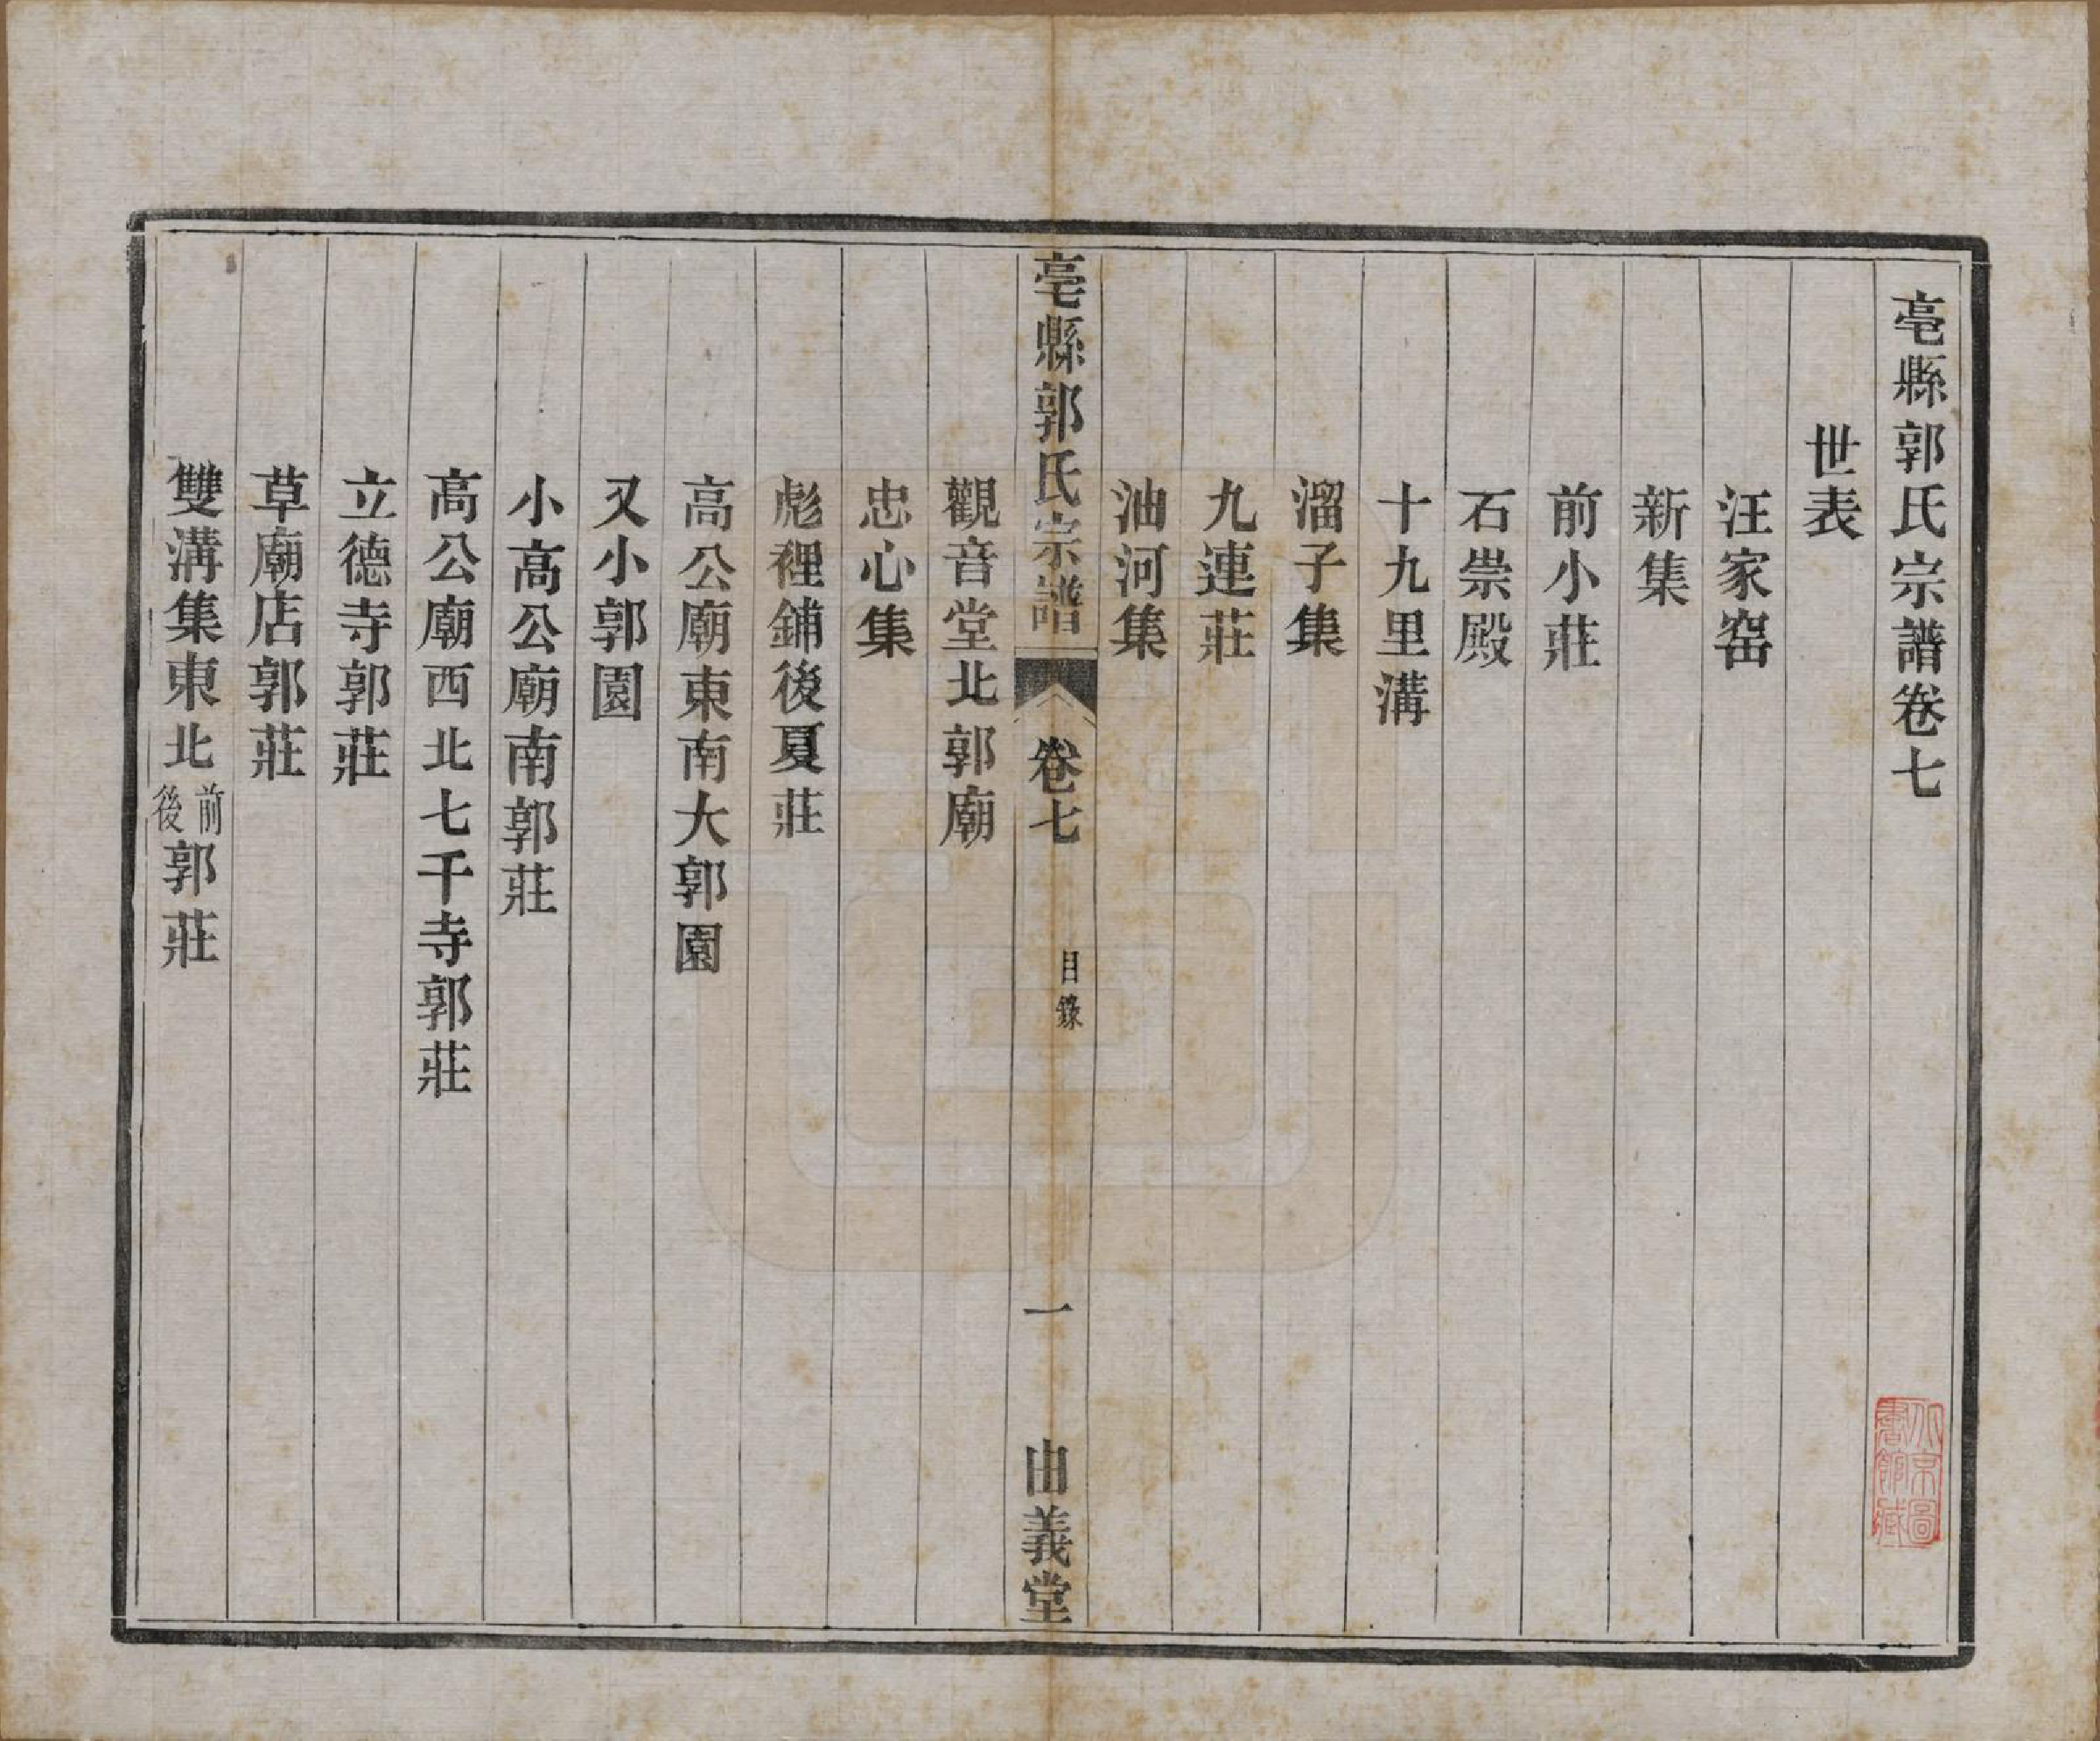 亳縣郭氏宗譜卷七
世表
汪家窑
新集
前小莊
石崇殿
十九里溝
溜子集
九連莊
油河集
亳縣郭氏宗譜
卷七
目錄
一
由義堂
觀音堂北郭廟
忠心集
彪裡鋪後夏莊
高公廟東南大郭園
又小郭園
小高公廟南郭莊
高公廟西北七千寺郭莊
立德寺郭莊
草廟店郭莊
雙溝集東北前後郭莊
北京圖書館藏